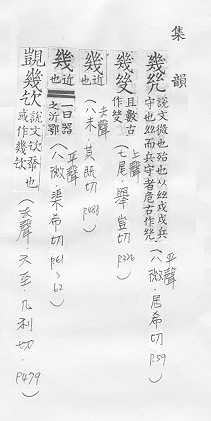 集韻
幾𢆻 說文微也殆也从𢆶从戍戍兵守也𢆶而兵守者危古作𢆻 平聲（八微．居希切 P59）
且數古作𢆻 上聲（七尾．舉豈切 P326
幾近也 去聲（八未 其既切 P488
幾近也一曰器之沂鄂 平聲（八微 渠希切 P61、62）
覬幾㰟 說文㰟𡴘也或作幾㰟 （去聲．六至．几利切．P479）